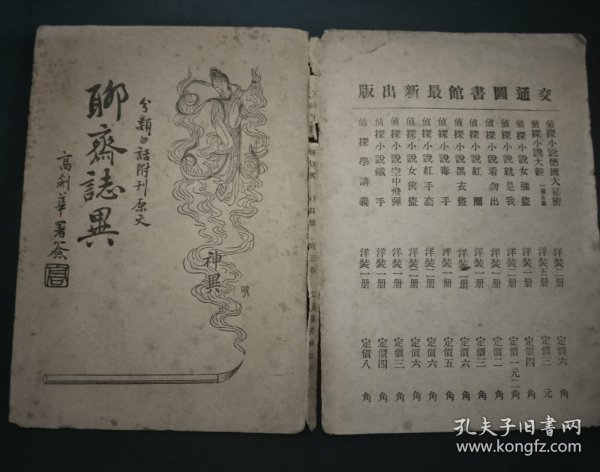 分類白話附刊原文
聊齋誌異
高劍華署簽
神異
交通圖書館最新出版
偵探小說德國大秘密 洋裝一冊 定價六角
偵探小說大觀 洋裝五冊 定價三元
偵探小說女強盜 洋裝一冊 定價四角
偵探小說就是我 洋裝二冊 定價一元二角
偵探小說看勿出 洋裝一冊 定價二角
偵探小說紅圈 洋裝一冊 定價三角
偵探小說黑衣盜 洋裝二冊 定價六角
偵探小說毒手 洋裝一冊 定價五角
偵探小說紅手套 洋裝二冊 定價六角
偵探小說女俠盜 洋裝一冊 定價六角
偵探小說空中飛彈 洋裝一冊 定價三角
偵探小說鐵手 洋裝一冊 定價四角
偵探學講義 洋裝一冊 定價八角
孔夫子旧书网
www.kongfz.com